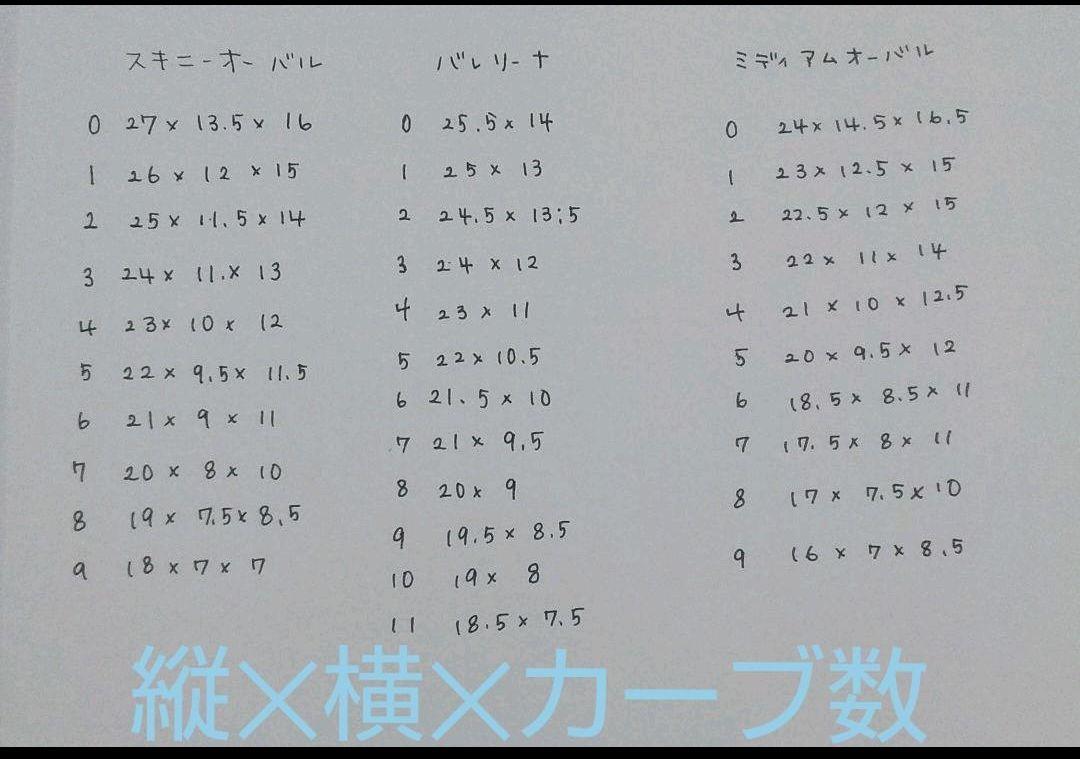 スキニーオーバル
0 27× 13.5× 16
1 26 × 12 × 15
2 25 × 11.5 × 14
3 24× 11.× 13
4 23× 10 × 12
5 22 × 9.5× 11.5
6 21× 9 × 11
7 20 × 8× 10
8 19 × 7.5× 8.5
9 18 × 7 × 7
バレリーナ
0 25.5× 14
1 25 × 13
2 24.5 × 13:5
3 24 × 12
4 23 × 11
5 22×10.5
6 21.5 × 10
7 21× 9.5
8 20× 9
9 19.5× 8.5
10 19× 8
11 18.5× 7.5
ミディアムオーバル
0 24×14.5×16.5
1 23×12.5 × 15
2 22.5× 12 × 15
3 22× 11× 14
4 21 × 10 × 12.5
5 20 × 9.5× 12
6 18.5× 8.5× 11
7 17.5× 8× 11
8 17 × 7.5×10
9 16 × 7× 8.5
縦×横×カーブ数